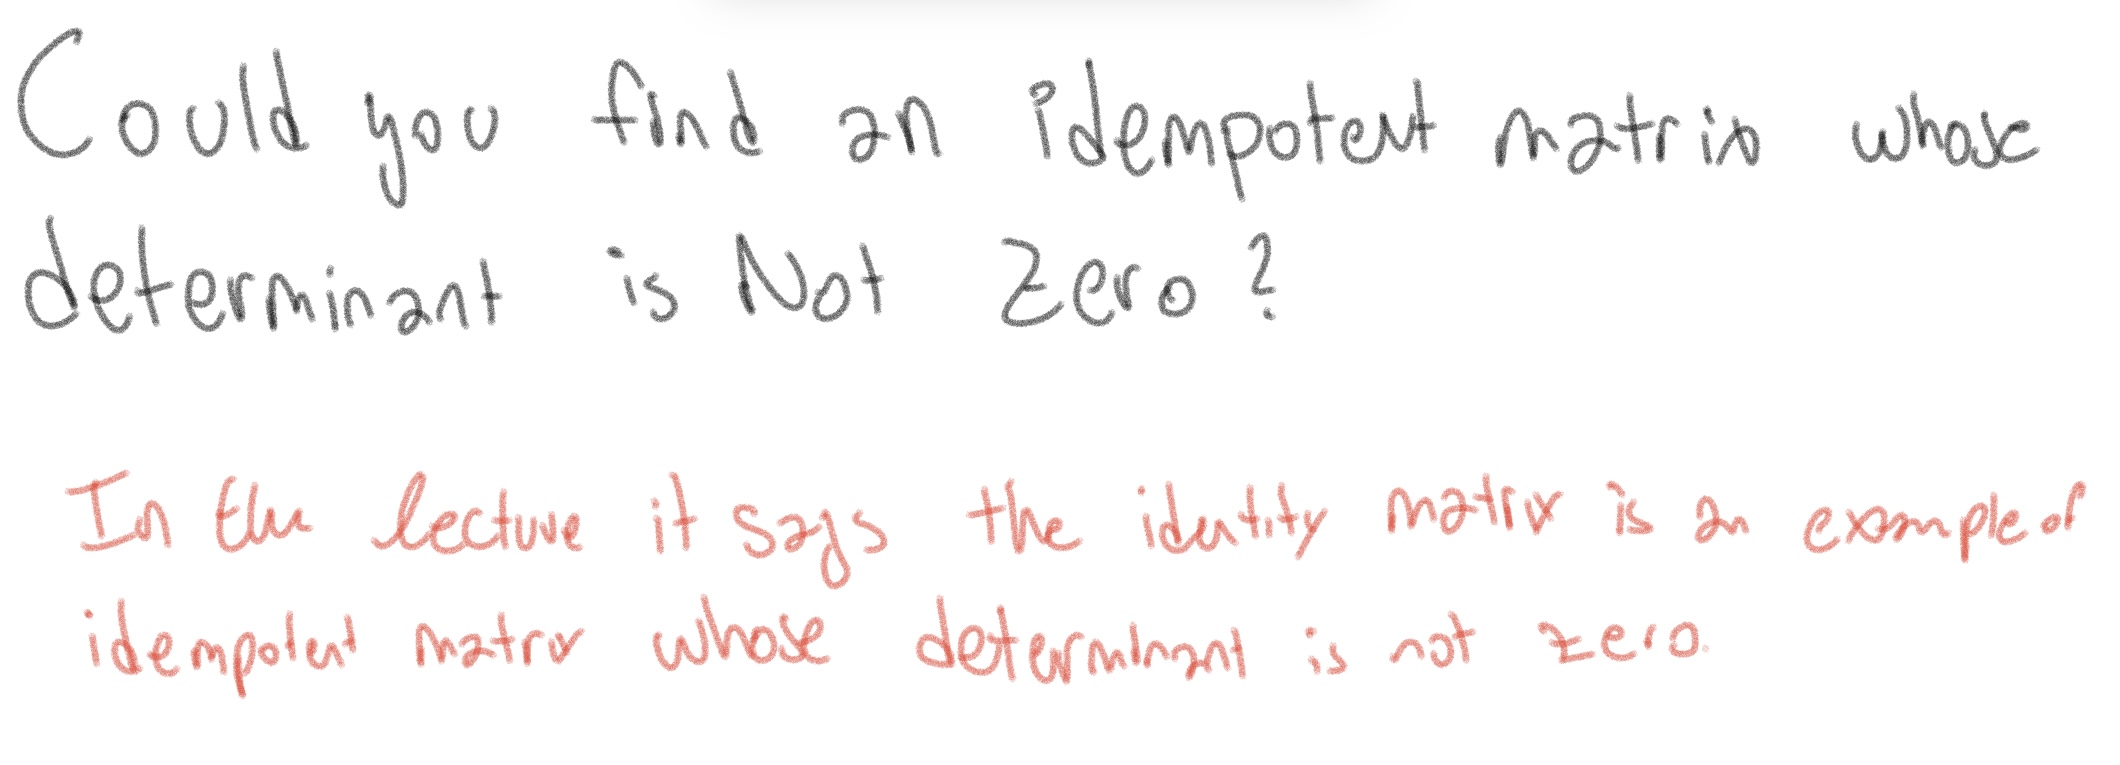 Could you find an idempotent matrix whose
determinant is Not Zero?
In the lecture it says the identity matrix is an example of
idempotent matrix whose determinant is not zero.